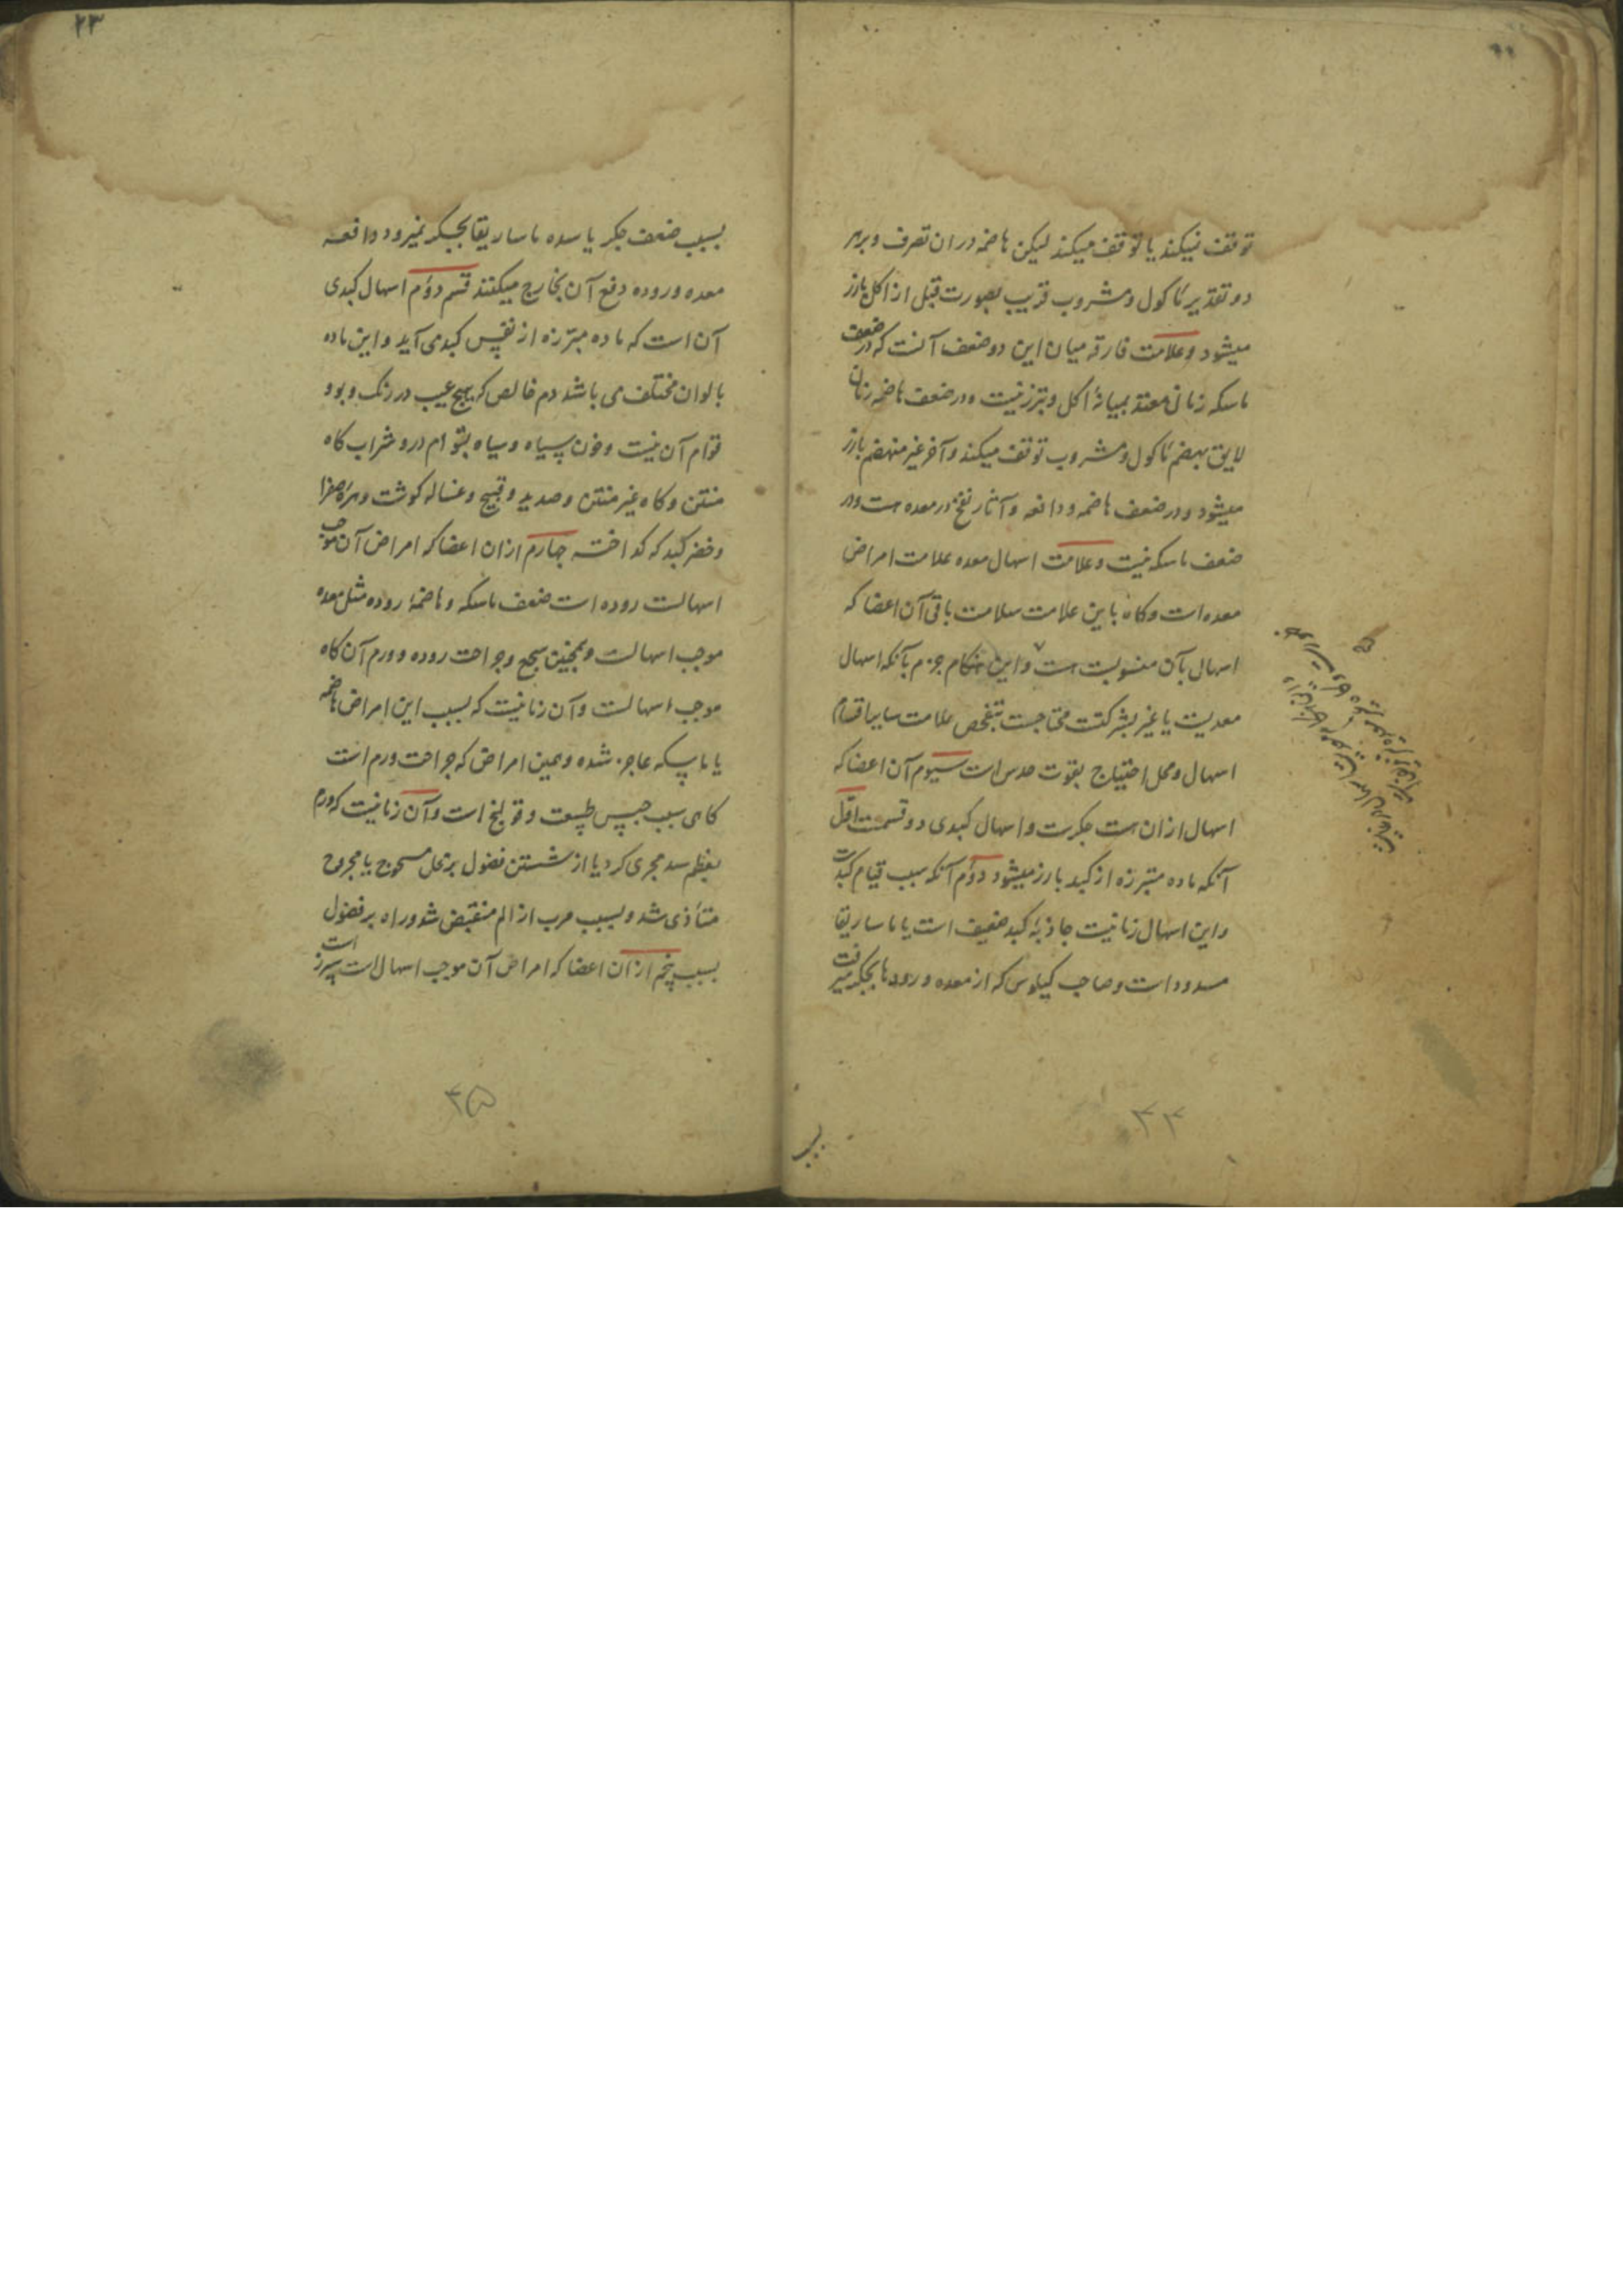 توقف نمیکند یا توقف میکند لیکن هاضمه در ان تصرف و بر هر
دو تقدیر مأکول و مشروب قریب بصورت قبل از اکل بارز
میشود و علامت فارقه میان این دو ضعف آنست که در ضعف
ماسکه زمانی معتد بمیانهٔ اکل و تبرز نیست و در ضعف هاضمه زمان
لایق بهضم مأکول و مشروب توقف میکند و آخر غیر منهضم بارز
میشود و در ضعف هاضمه و دافعه و آثار نفخ در معده هست و در
ضعف ماسکه نیست و علامت اسهال معده علامت امراض
معده است و کاه باین علامت سلامت باقی آن اعضا که
اسهال بآن منسوبست هست و این هنکام جزم بآنکه اسهال
معدیست یا غیر بشرکتست محتاجست بتفحص علامت سایر اقسام
اسهال و محل احتیاج بقوت حدس است سیوم آن اعضا که
اسهال ازان هست جکرست و اسهال کبدی دو قسمست اوّل
آنکه ماده متبرزه از کبد بارز میشود دوّم آنکه سبب قیام کبدست
و این اسهال زمانیست جاذبهٔ کبد ضعیف است یا ماساریقا
مسدود است و صاحب کیلوس که از معده و رودها بجکر میرفت
بسبب
۴۴
۲۳
بسبب ضعف جکر یا سده ماساریقا بجکر نمیرود دافعه
معده و روده دفع آن بخارج میکنند قسم دوّم اسهال کبدی
آن است که ماده متبرزه از نفس کبد می آید و این ماده
بالوان مختلف می باشد دم خالص که هیچ عیب در رنک و بو و
قوام آن نیست و خون سیاه و سیاه بقوام درد شراب کاه
منتن و کاه غیر منتن و صدید و قیح و غساله کوشت و مره صفرا
و خضر کبد که کداخته چهارم ازان اعضا که امراض آن موجب
اسهالست روده است ضعف ماسکه و هاضمهٔ روده مثل معده
موجب اسهالست و همچنین سحج و جراحت روده و ورم آن کاه
موجب اسهالست و آن زمانیست که بسبب این امراض هاضمه
یا ماسکه عاجز شده و همین امراض که جراحت ورم است
کاهی سبب حبس طبیعت و قولنج است و آن زمانیست که ورم
بعظم سد مجری کرد یا از شستن فضول بر محل مسحوج یا مجروح
متأذی شد و بسبب هرب از الم منقبض شد و راه بر فضول
بسبب پنجم ازان اعضا که امراض آن موجب اسهال است سپرز است
۴۵